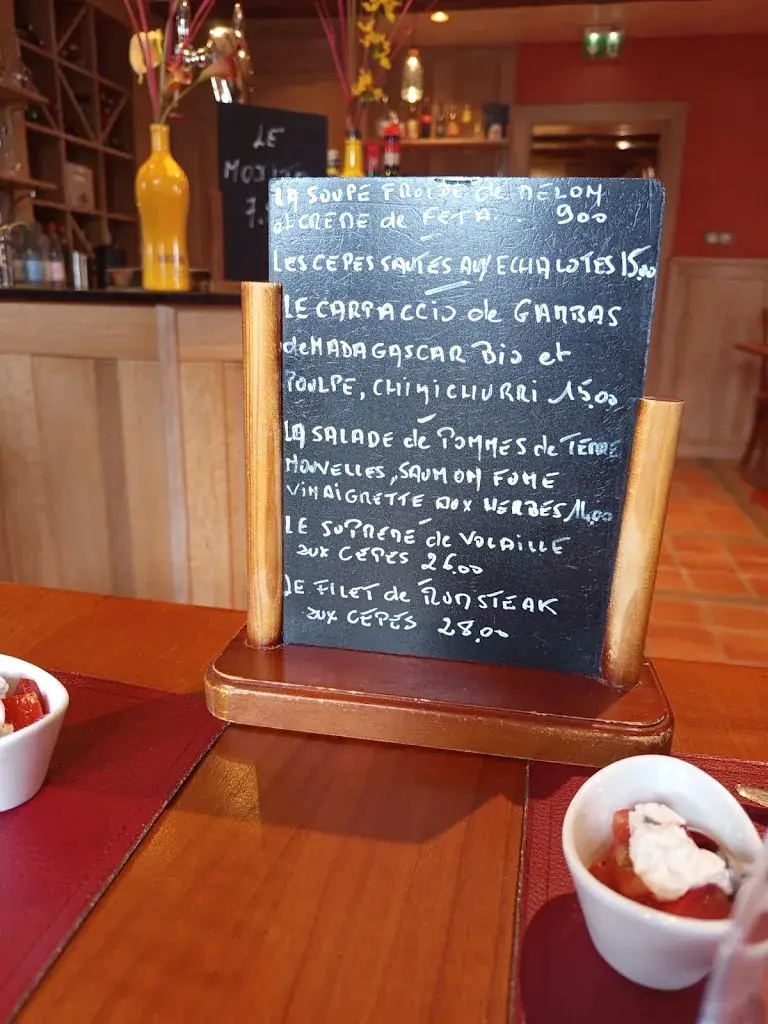 LE
MOJITO
7.
LA SOUPE FROIDE de MELON
et CREME de FETA. 9.00
LES CEPES SAUTES AUX ECHALOTES 15.00
LE CARPACCIO de GAMBAS
de MADAGASCAR Bio et
POULPE, CHIMICHURRI 15.00
LA SALADE de POMMES de TERRE
NOUVELLES, SAUMON FUME
VINAIGRETTE AUX HERBES 14.00
LE SUPREME de VOLAILLE
aux CEPES 26.00
LE FILET de RUMSTEAK
aux CÉPES 28.00